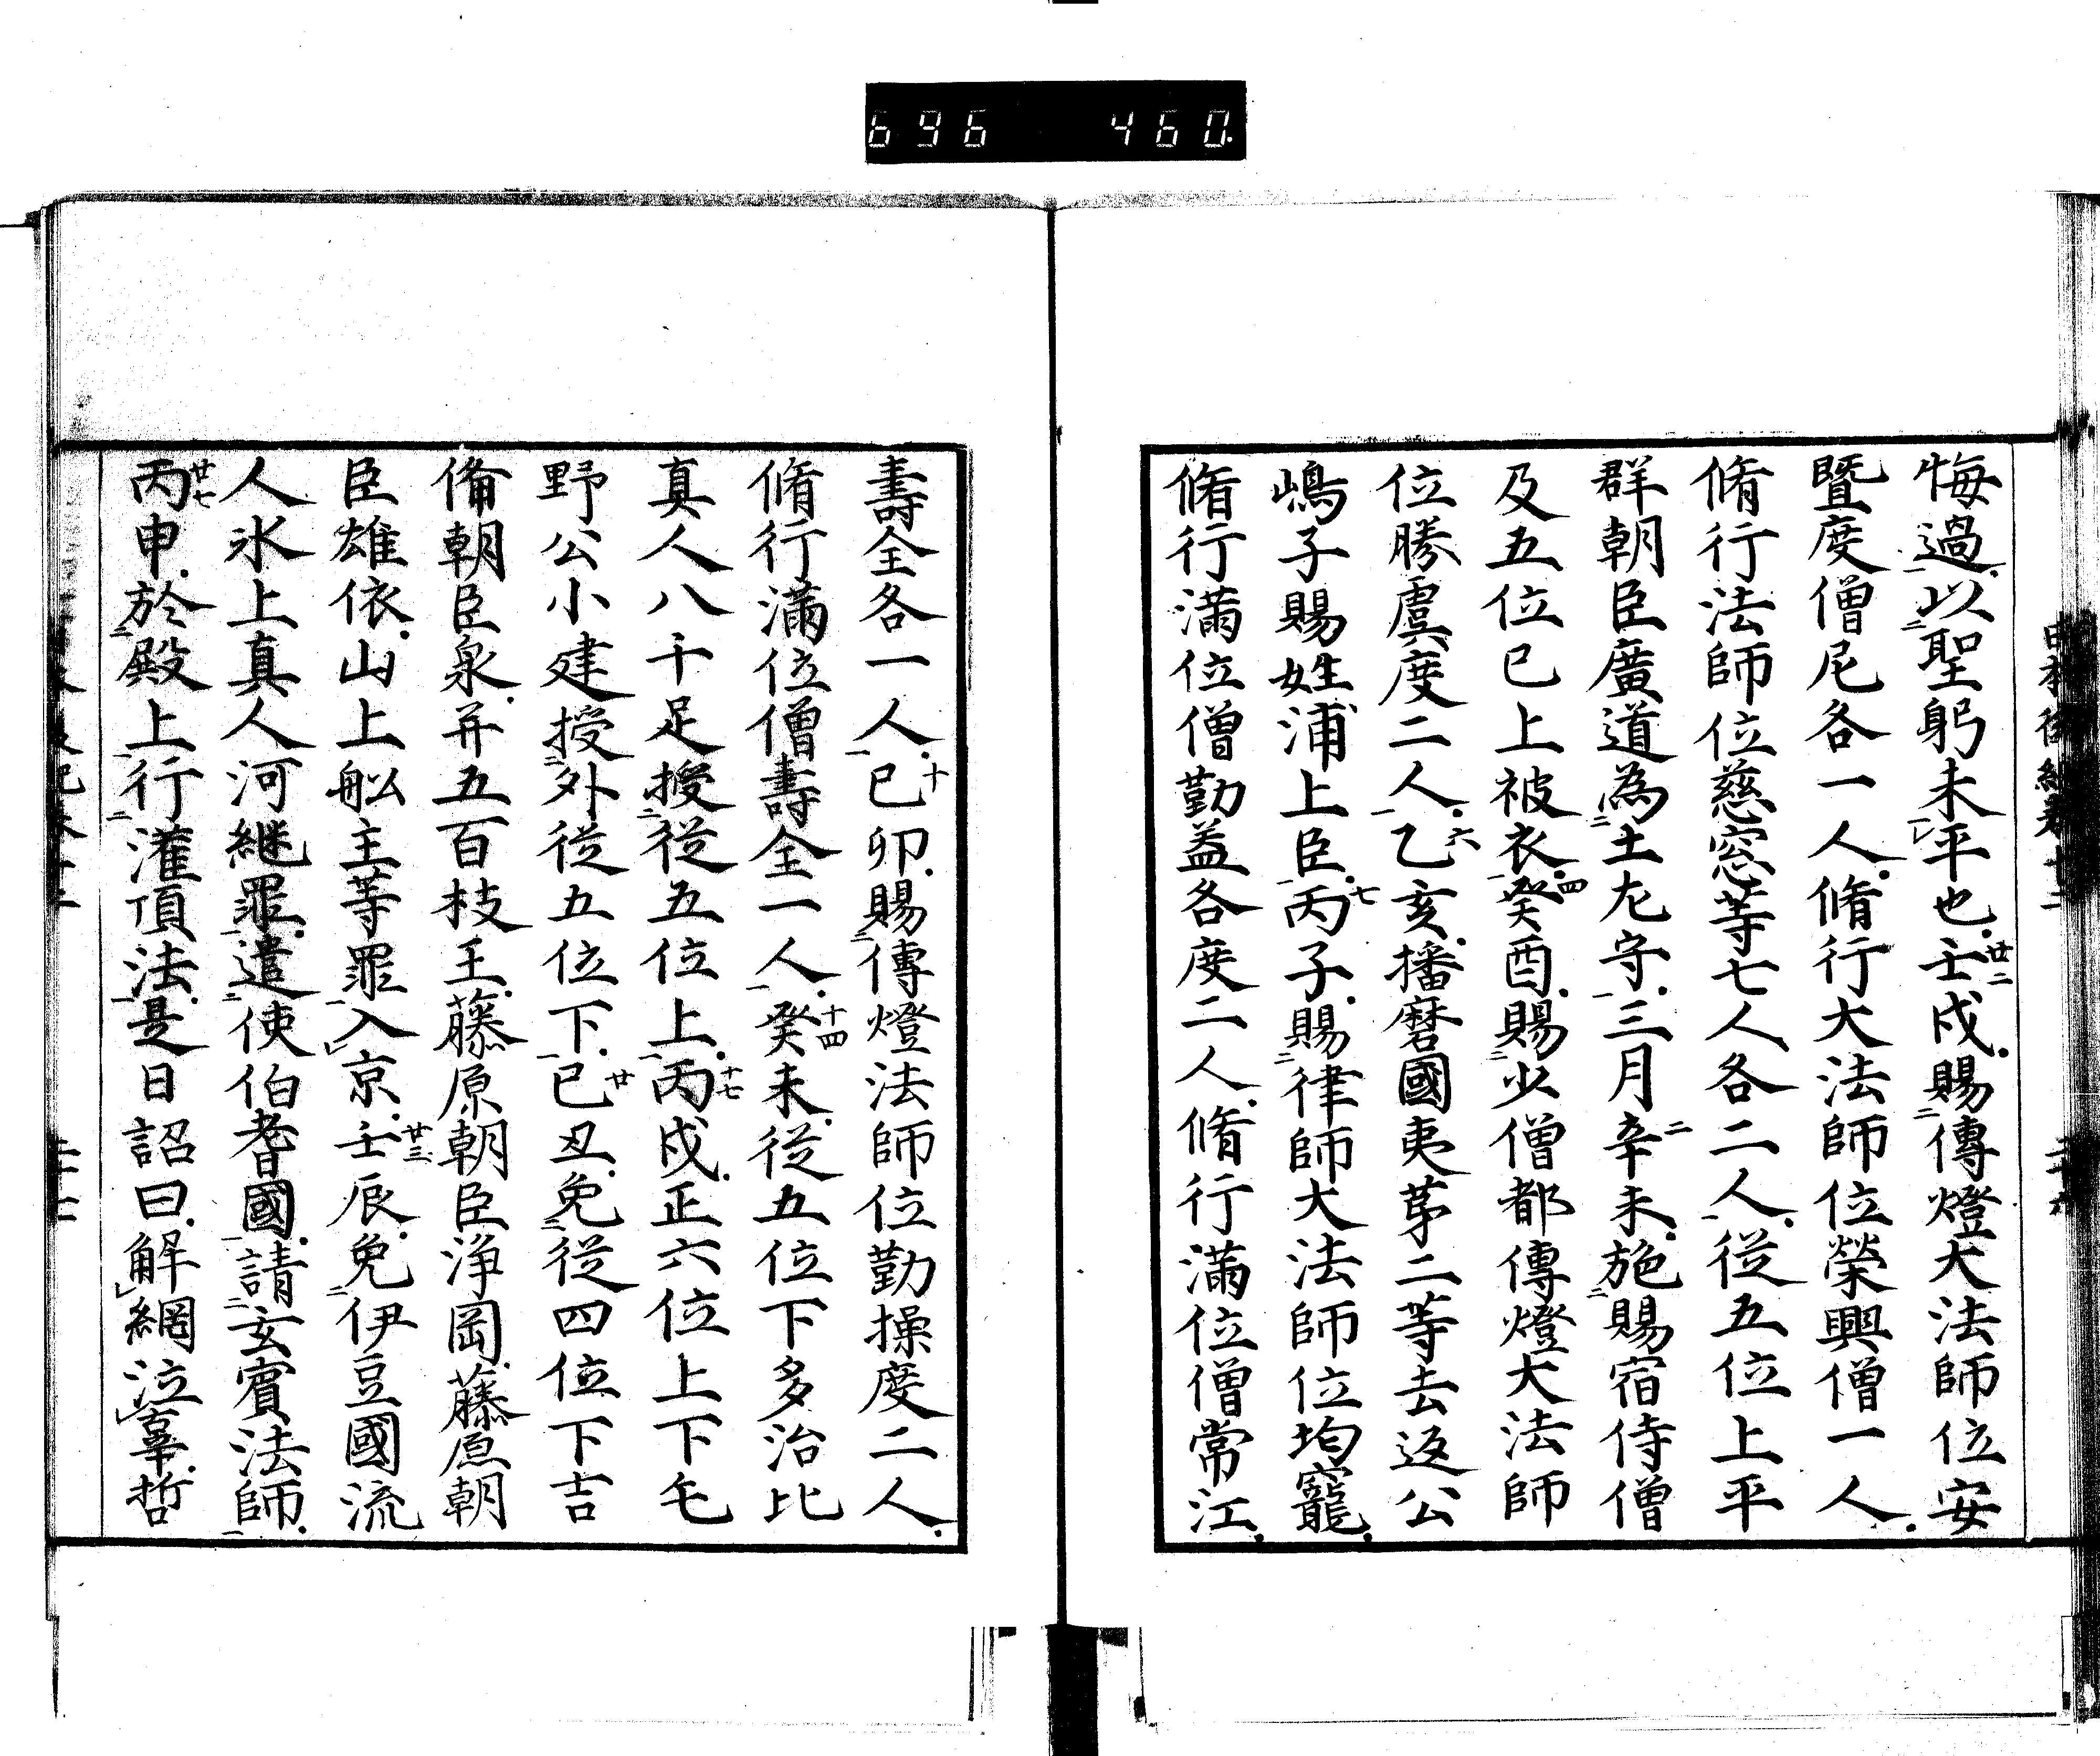 696 460
悔過以聖躬未平也壬戌賜傳燈大法師位安
曁度僧尼各一人脩行大法師位榮興僧一人
脩行法師位慈窓等七人各二人從五位上平
群朝臣廣道為土左守三月辛未施賜宿侍僧
及五位已上被衣癸酉賜少僧都傳燈大法師
位勝虞度二人乙亥播磨國夷苐二等去返公
嶋子賜姓浦上臣丙子賜律師大法師位均寵
脩行滿位僧勤益各度二人脩行滿位僧常江
壽全各一人己卯賜傳燈法師位勤操度二人
脩行滿位僧壽全一人癸未從五位下多治比
真人八千足授從五位上丙戌正六位上下毛
野公小建授外從五位下己丑免從四位下吉
備朝臣泉并五百枝王藤原朝臣浄岡藤原朝
臣雄依山上舩主等罪入京壬辰免伊豆國流
人氷上真人河継罪遣使伯耆國請玄賓法師
丙申於殿上行灌頂法是日詔曰解網泣辜哲